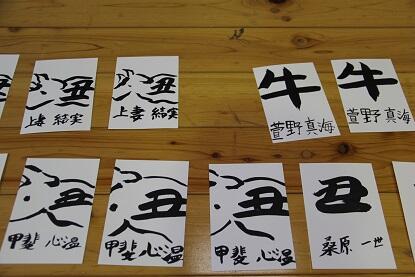 丑
上妻 結実
丑
上妻 結実
牛
萱野真海
牛
萱野真海
丑
甲斐 心温
丑
甲斐 心温
丑
甲斐 心温
丑
桑原 一世